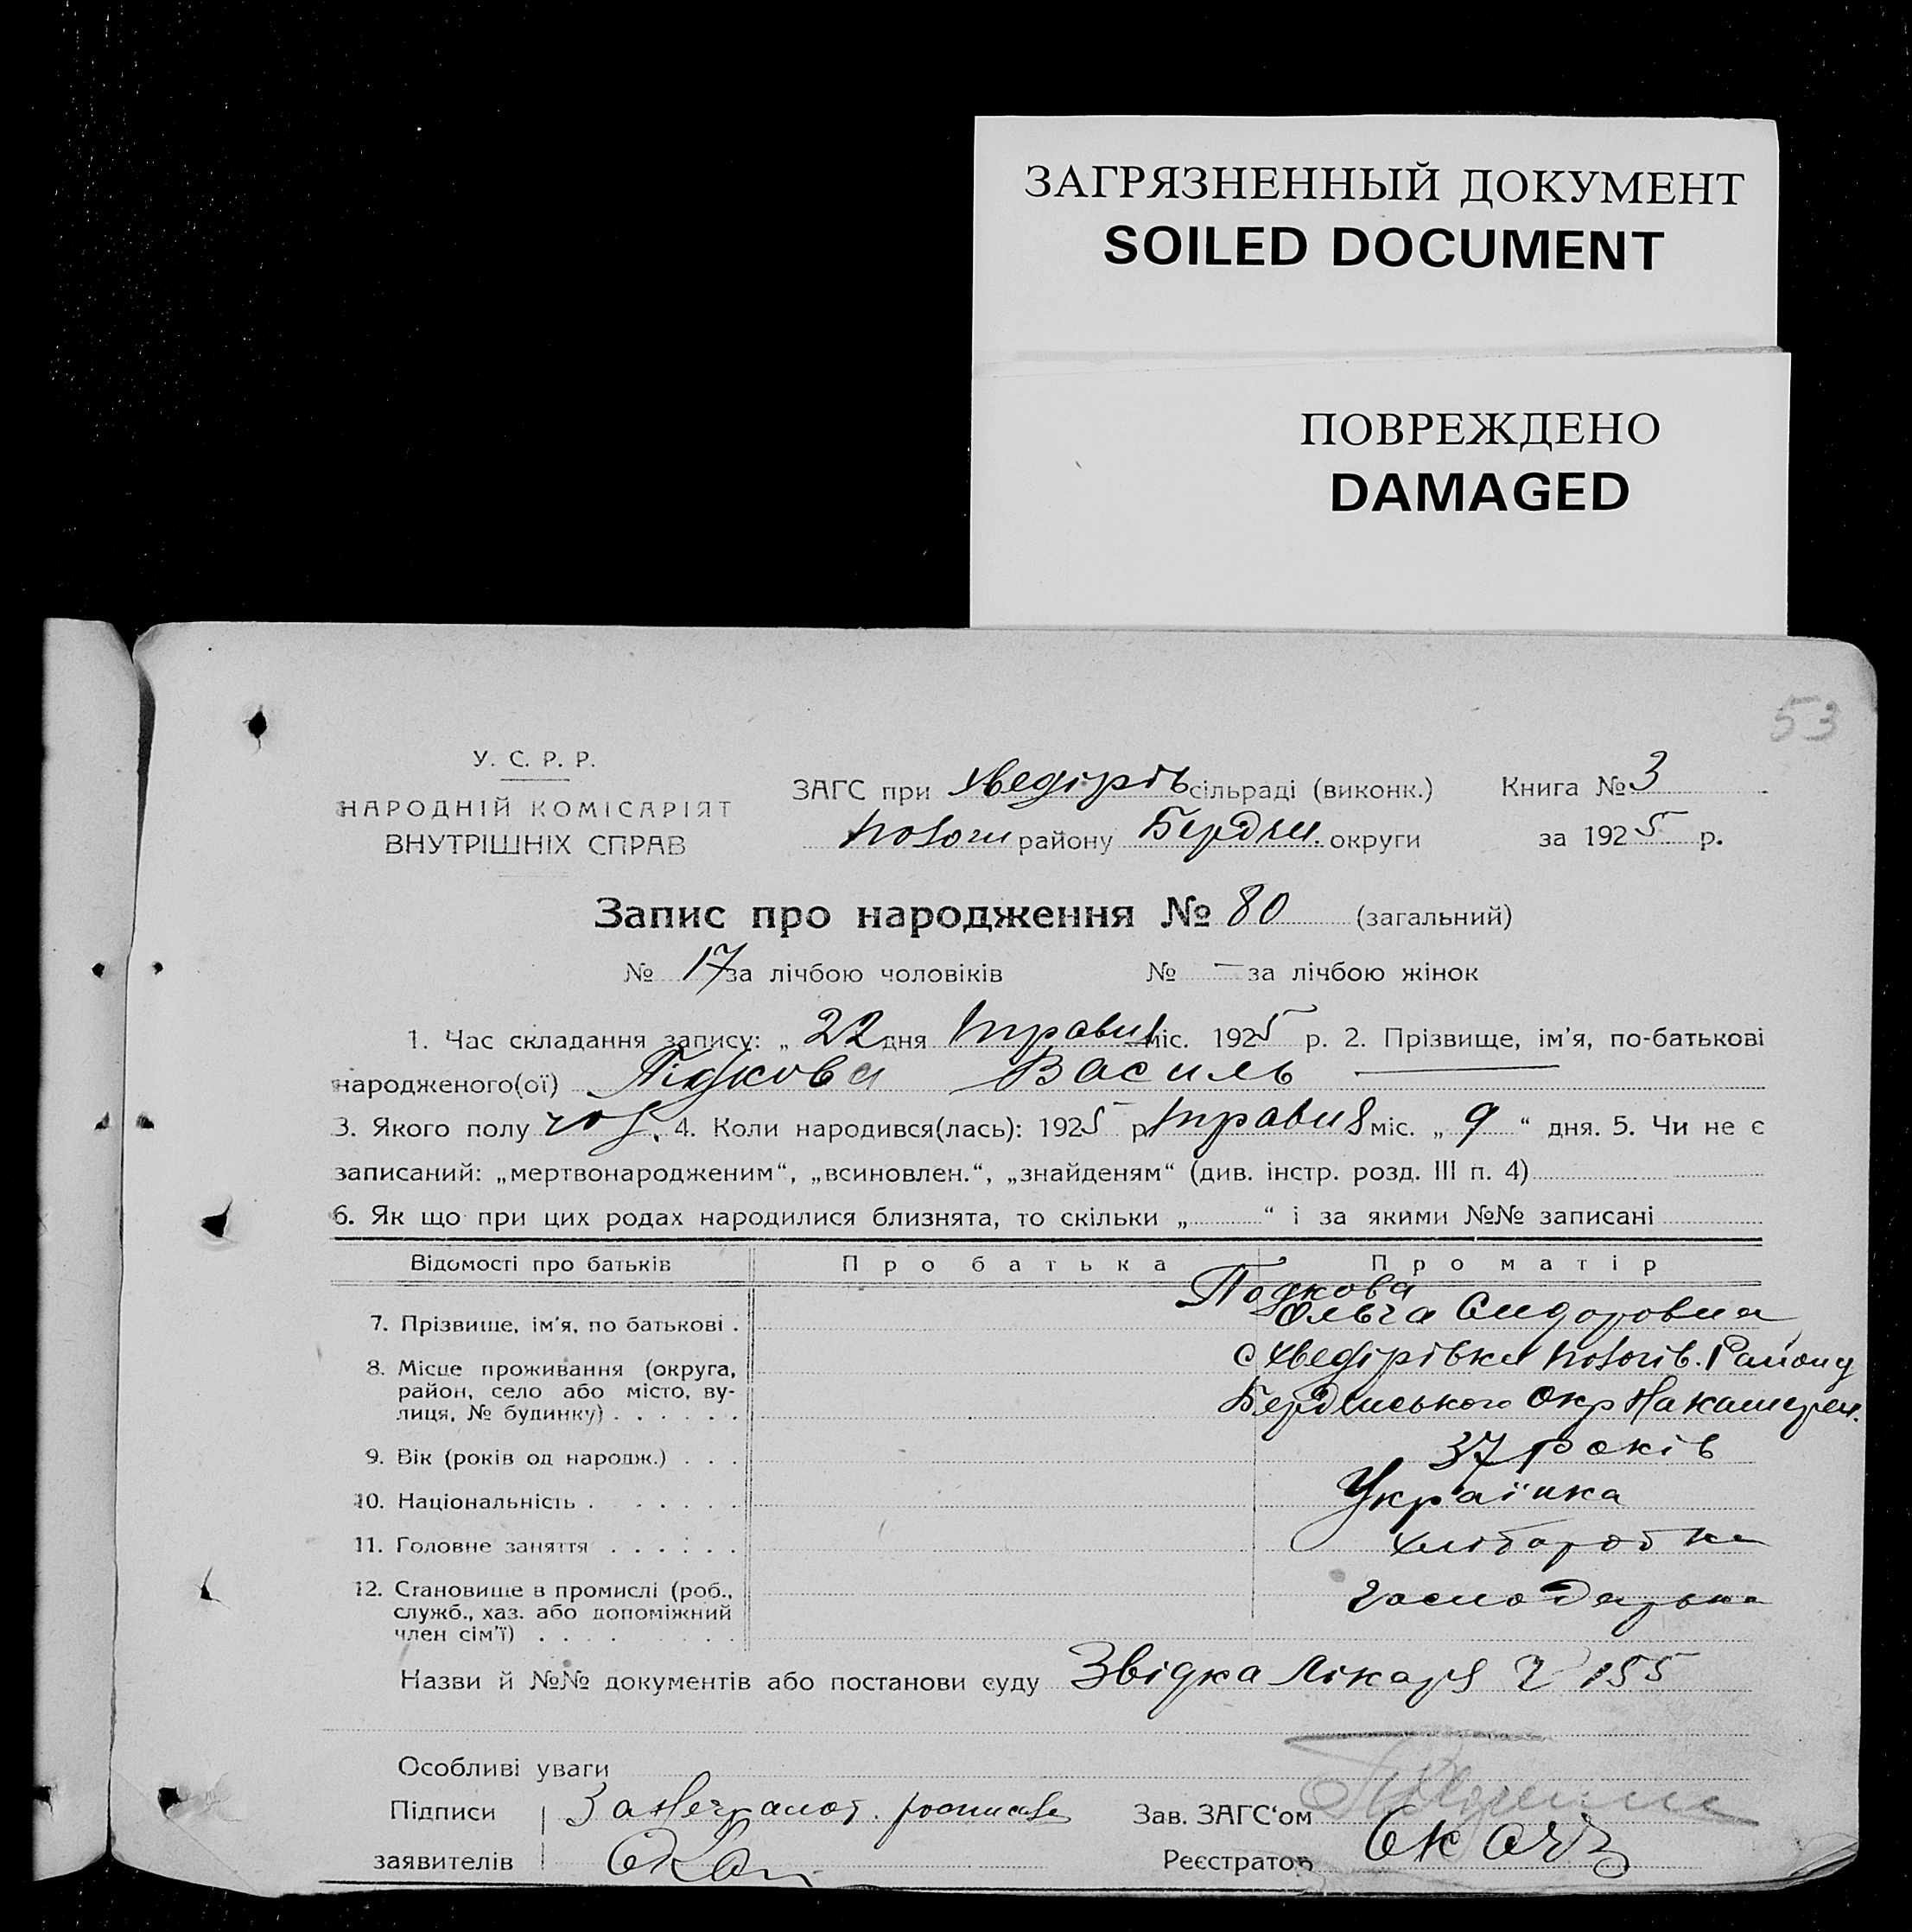 ЗАГРЯЗНЕННЫЙ ДОКУМЕНТ
SOILED DOCUMENT
ПОВРЕЖДЕНО
DAMAGED
53
У. С. Р. Р.
НАРОДНІЙ КОМІСАРІЯТ
ВНУТРІШНІХ СПРАВ
ЗАГС при Хведірів сільраді (виконк.) Книга № 3
району Бердян. округи за 1925 р.
Запис про народження № 80 (загальний)
№ 17 за лічбою чоловіків № — за лічбою жінок
1. Час складання запису: „ 22 дня травня міс. 1925 р. 2. Прізвище, ім'я, по-батькові
народженого(ої) Підкова Василь —
3. Якого полу чол. 4. Коли народився(лась): 1925 р. травня міс. „ 9 “ дня. 5. Чи не є
записаний: „мертвонародженим“, „всиновлен.“, „знайденям“ (див. інстр. розд. III п. 4)
6. Як що при цих родах народилися близнята, то скільки „ “ і за якими №№ записані
Відомості про батьків Про батька Про матір
Подкова
7. Прізвище, ім'я, по батькові . Ольга Сидоровна
8. Місце проживання (округа, с Хведірівка Району
район, село або місто, ву-
лиця, № будинку) . . . . . . Бердянського Окр
9. Вік (років од народж.) . . . 37 років
10. Національність . . . . . . . Українка
11. Головне заняття . . . . . . хліборобка
12. Становище в промислі (роб.,
служб., хаз. або допоміжний
член сім'ї) . . . . . . . . .
Назви й №№ документів або постанови суду Звідка Лікаря Ч 155
Особливі уваги
Підписи За Неграмот.
Зав. ЗАГС'ом
заявителів
Реєстратор